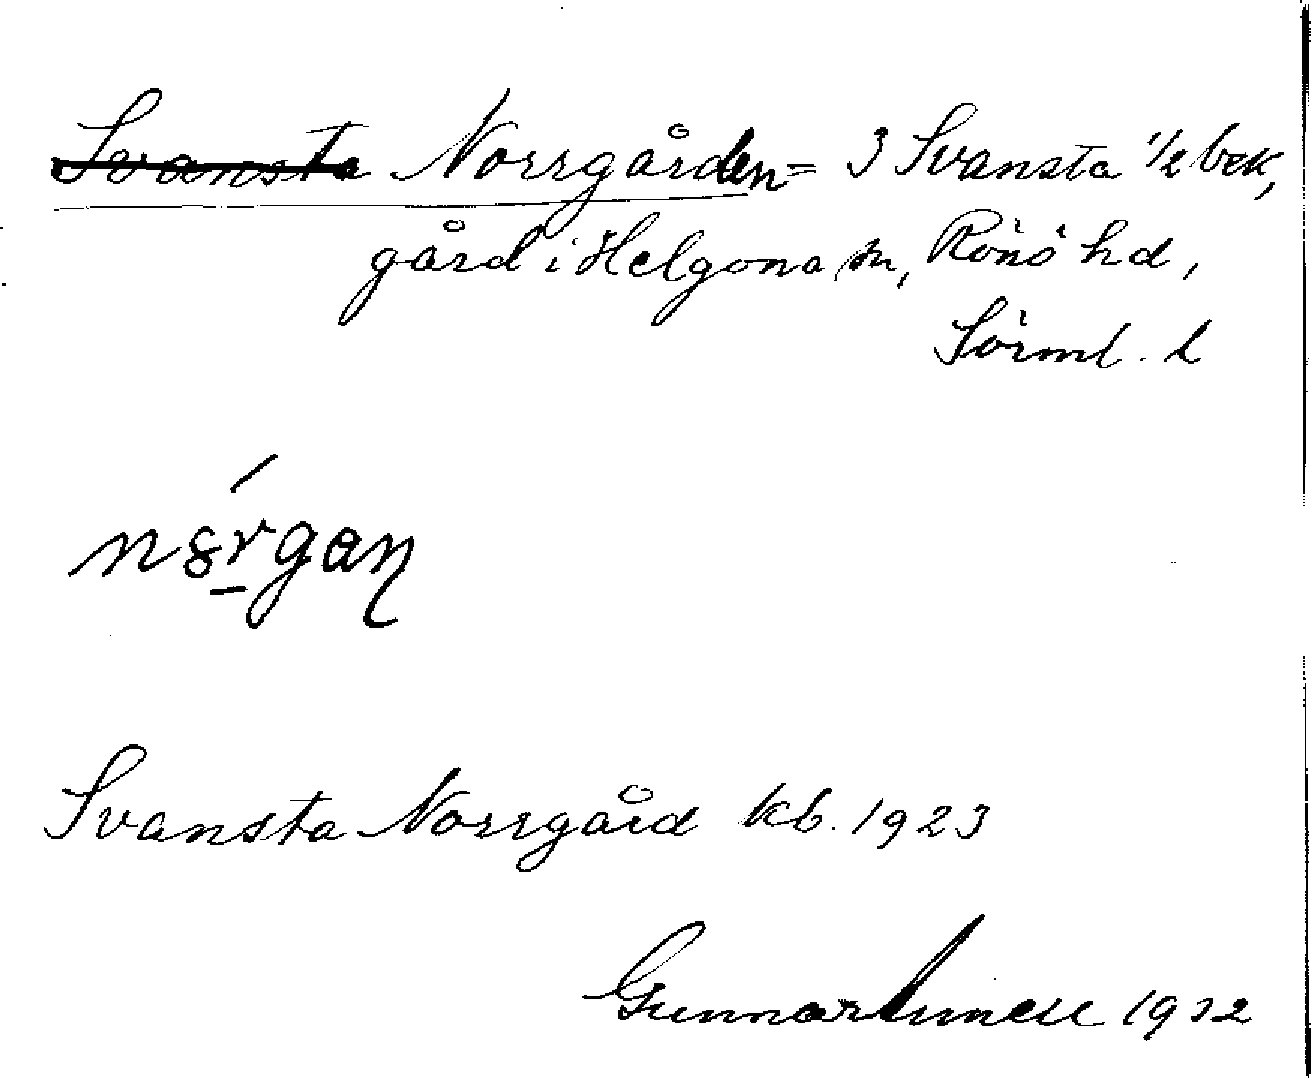 Svansta Norrgården = 3 Svansta 1/2 bek,
gård i Helgona sn, Rönö hd,
Sörml. l
Svansta Norrgård kb. 1923
Gunnar Linnell 1932